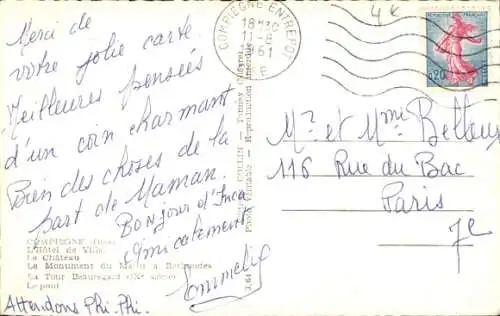 Merci de
votre jolie carte.
Meilleures pensées
d'un coin charmant
Bien des choses de la
part de Maman.
Bonjour d'Inca
Amicalement
COMPIEGNE (Oise)
L'Hôtel de Ville
Le Château
Le Monument du Matin à Rethondes
La Tour Beauregard (IXe siècle)
Le pont
Attendons Phi-Phi.
COMPIEGNE ENTREPOT
18H
11-8
1961
REPUBLIQUE FRANÇAISE
0,20
4€
Mr et Mme Belloux
116 Rue du Bac
Paris
7e
Reproduction interdite
Photo véritable